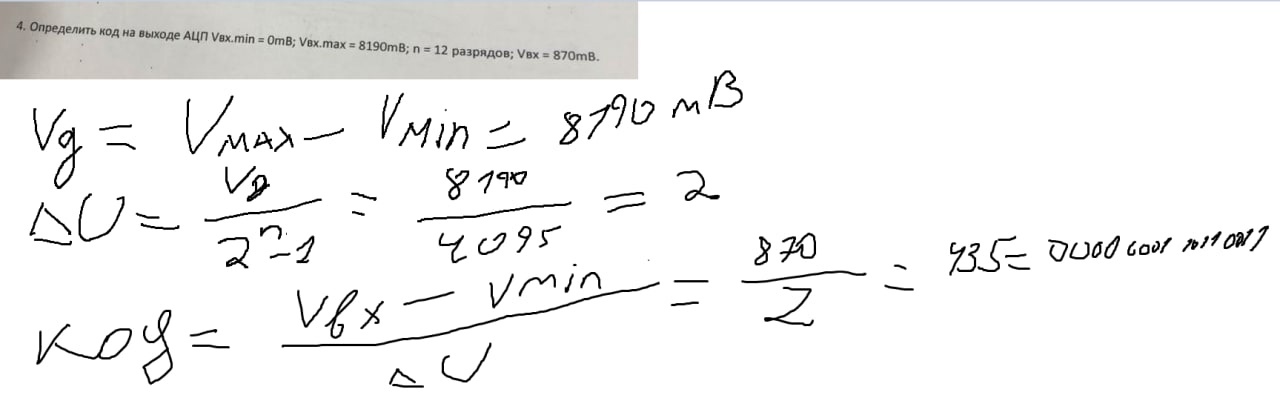 4. Определить код на выходе АЦП Vвх.min = 0mB; Vвх.max = 8190mB; n = 12 разрядов; Vвх = 870mB.
Vg = Vмах – Vмin = 8190 мВ
ΔU = Vg / 2ⁿ-1 = 8190 / 4095 = 2
код = Vвх – Vmin / ΔU = 870 / 2 = 435 = 0000 0001 1011 0011